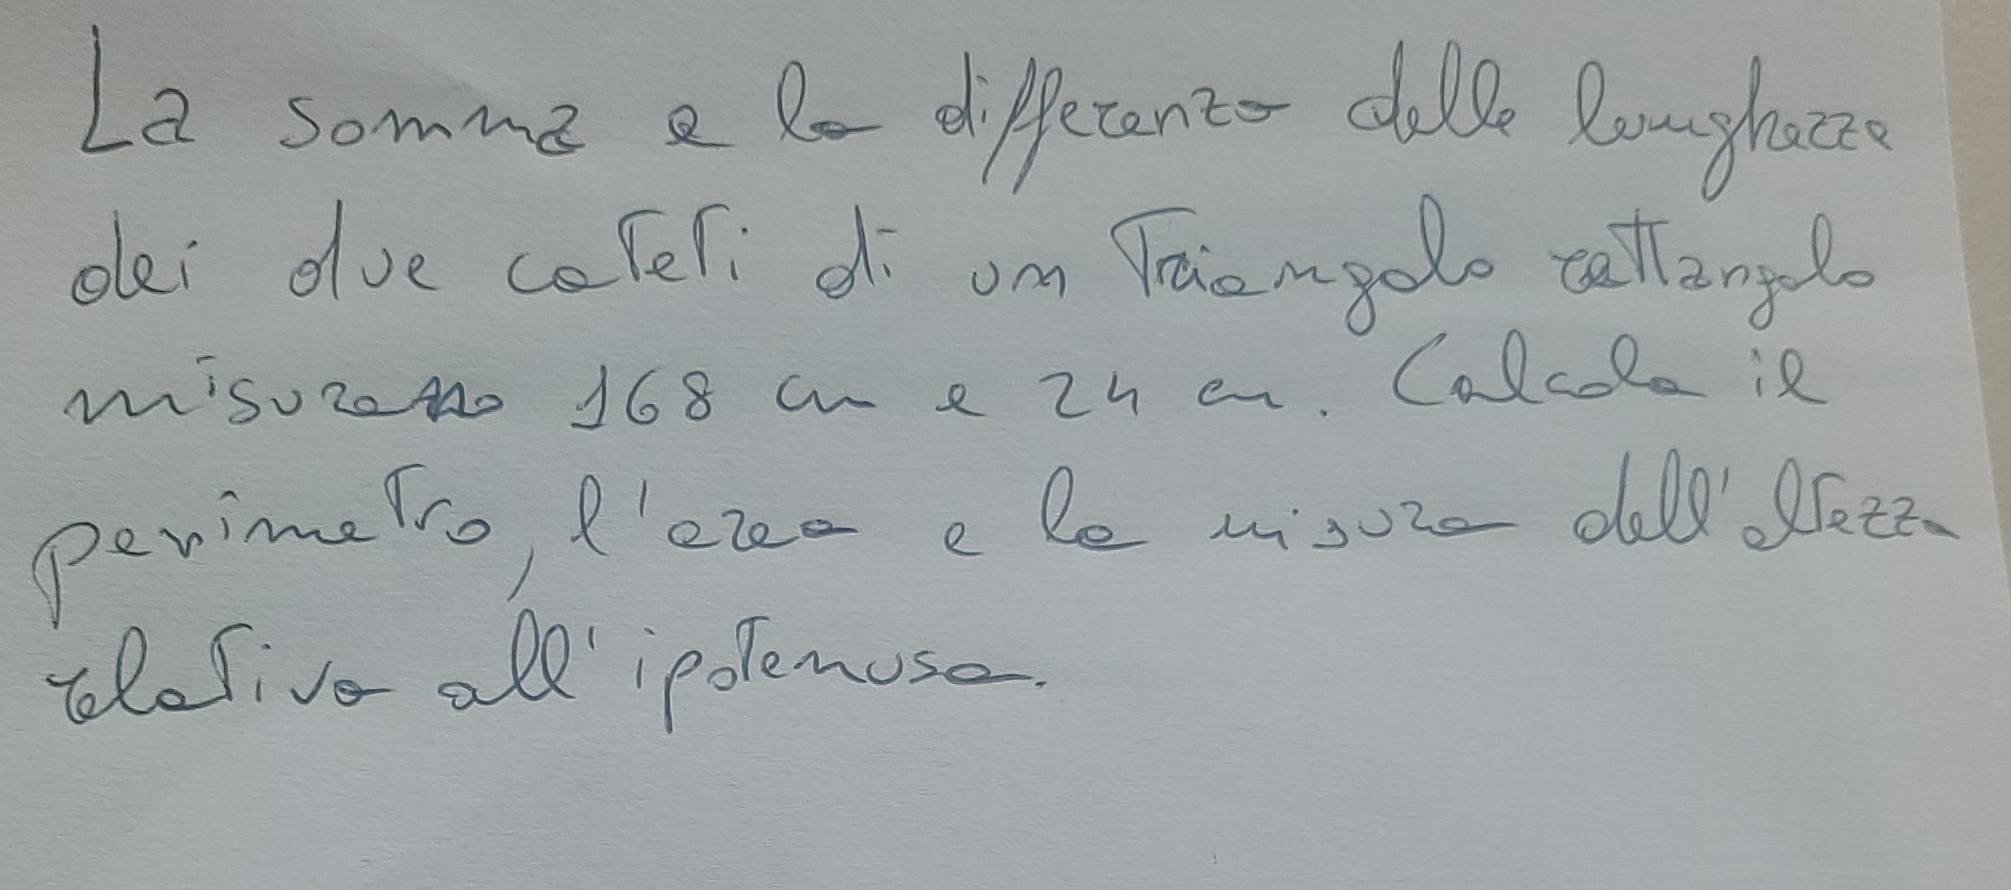 La somma e la differenza delle lunghezze
dei due cateti di un Triangolo rettangolo
misurano 168 cm e 24 cm. Calcola il
perimetro, l'area e la misura dell'altezza
relativa all'ipotenusa.